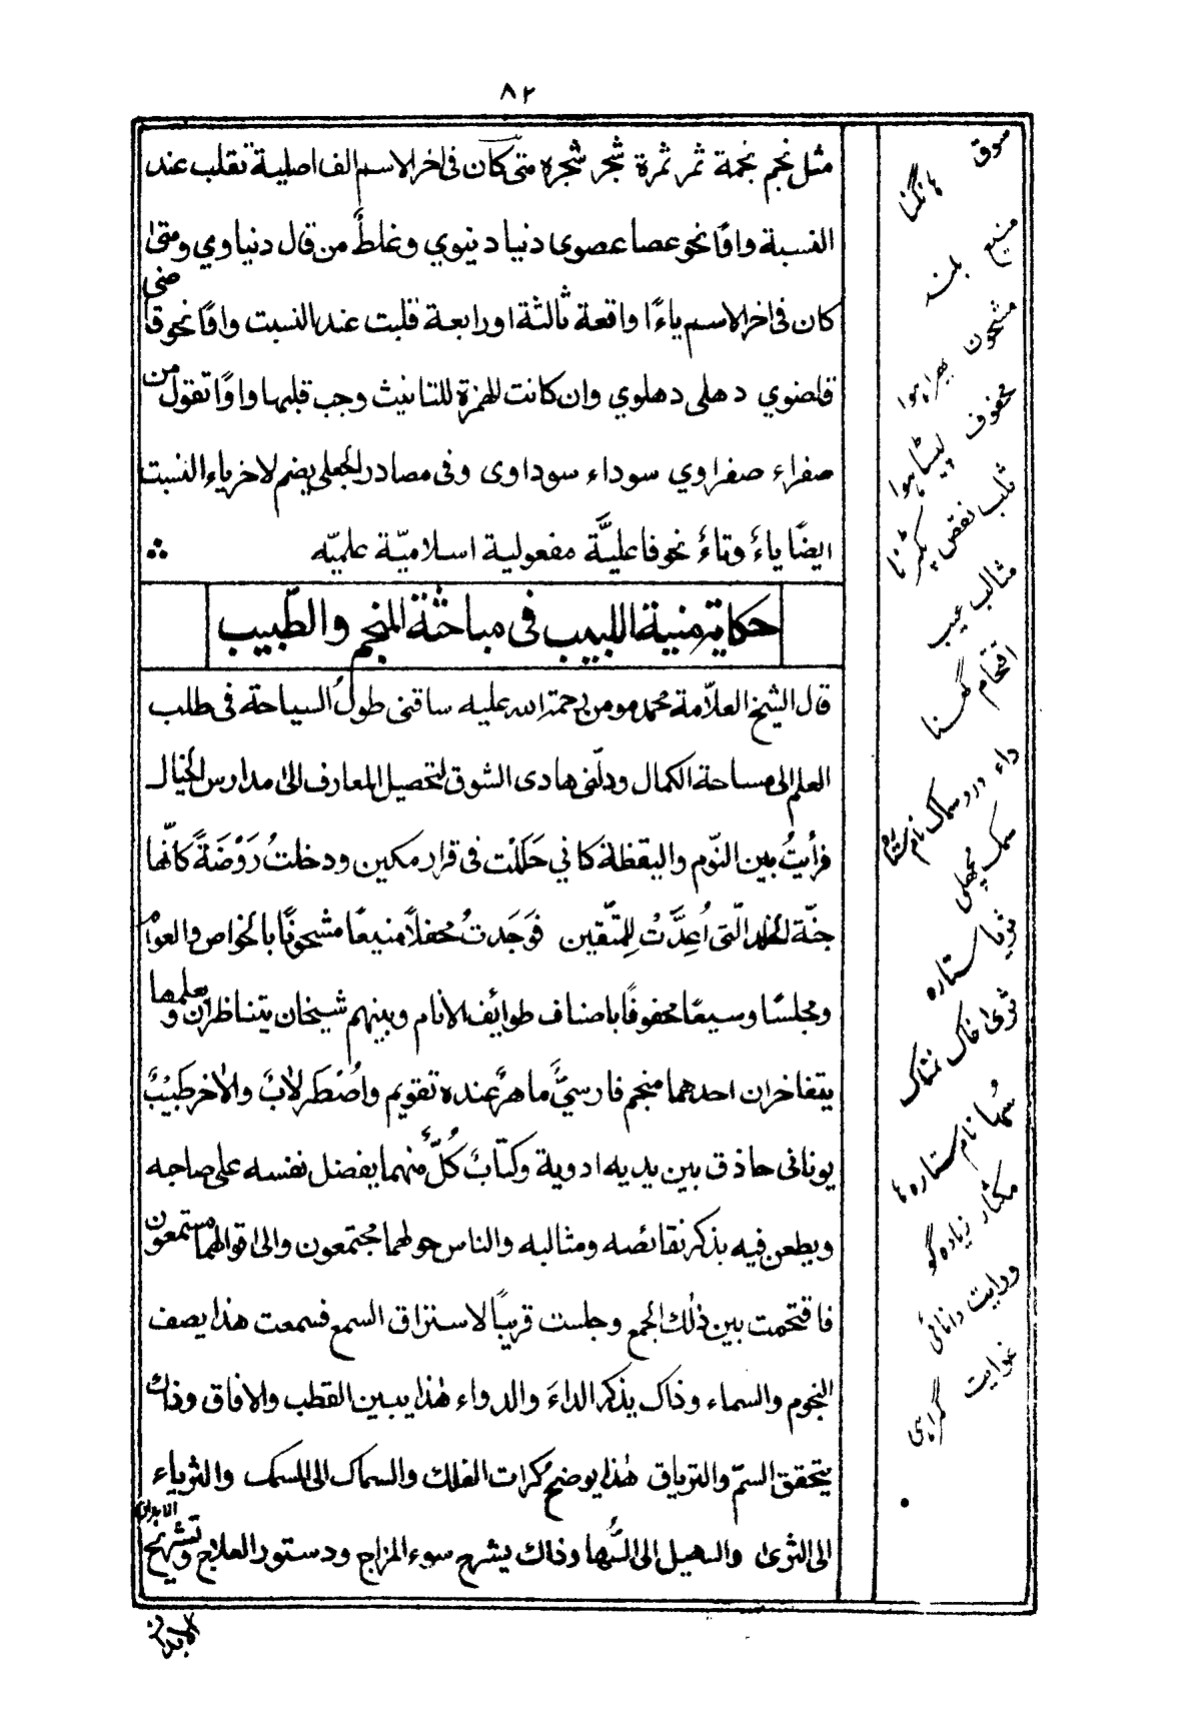 ٨٢
مثل نجم نجمة ثمر ثمرة شجر شجرة متى كان فى اخر الاسم الف اصلية تقلب عند
النسبة واوًا نحو عصا عصوى دنيا دنيوي وغلطٌ من قال دنياوي ومتىٰ
كان فى اخر الاسم ياءًا واقعة ثالثة او رابعة قلبت عند النسبت واوًا نحو قاضى
قاضوي دهلى دهلوي وان كانت للهمزة للتانيث وجب قلبها واوًا تقول من
صفراء صفراوي سوداء سوداوى وفى مصادر الجعلى يضم لاخر ياء النسبت
ايضًا ياءٌ وتاءٌ نحو فاعليَّة مفعولية اسلاميّة علميّه
حكاية منية اللبيب فى مباحثة المنجم والطّبيب
قال الشيخ العلاّمة محمد مومن رحمة الله عليه ساقنى طولُ السياحة فى طلب
العلم الى مساحة الكمال ودلّنى هادى الشوق لتحصيل المعارف الىٰ مدارس الخيال
فرأيتُ بين النّوم واليقظة كانى حَلَلْت فى قرار مكين ودخلتُ رَوْضَةً كانّها
جنّة الخلد الّتى اُعِدَّتْ لِلمتّقين فوَجَدتُ محفلاً منيعًا مشحونًا بالخواص والعوام
ومجلسًا وسيعًا محفوفًا باصناف طوائف الانام وبينهم شيخان يتناظران وبعلمها
يتفاخران احدهما منجم فارسيٌّ ماهرٌ عنده تقويم واُصْطُرلابٌ والاٰخر طبيبٌ
يونانى حاذق بين يديه ادوية وكتابٌ كُلٌّ منهما يفضل نفسه على صاحبه
ويطعن فيه بذكر نقائصه ومثالبه والناس حولهما مجتمعون والى اقوالهما مستمعون
فاقتحمت بين ذٰلك الجمع وجلست قريبًا لاستراق السمع فسمعت هذا يصف
النجوم والسماء وذاك يذكر الداءَ والدواء هٰذا يبين القطب والافاق وذاك
يتحقق السمّ والترياق هٰذا يوضح كرات الفلك والسماك الى السمك والثرياء
الى الثرىٰ والسهيل الى السُّها وذاك يشرح سوء المزاج ودستور العلاج وتشريح الابدان
الابدان
سوق ہانکنا
منیع بلند
مشحون بھرا ہوا
محفوف لپٹا ہوا
ثلب نقص پکڑنا
مثالب عیب
اقتحام گھسنا
داء درد سماک نام ستارہ
سمک مچھلی
ثریا ستارہ
ثریٰ خاک نمناک
سُہا نام ستارہ
مکثار زیادہ گو
ودرایت دانائی
غوایت گمراہی